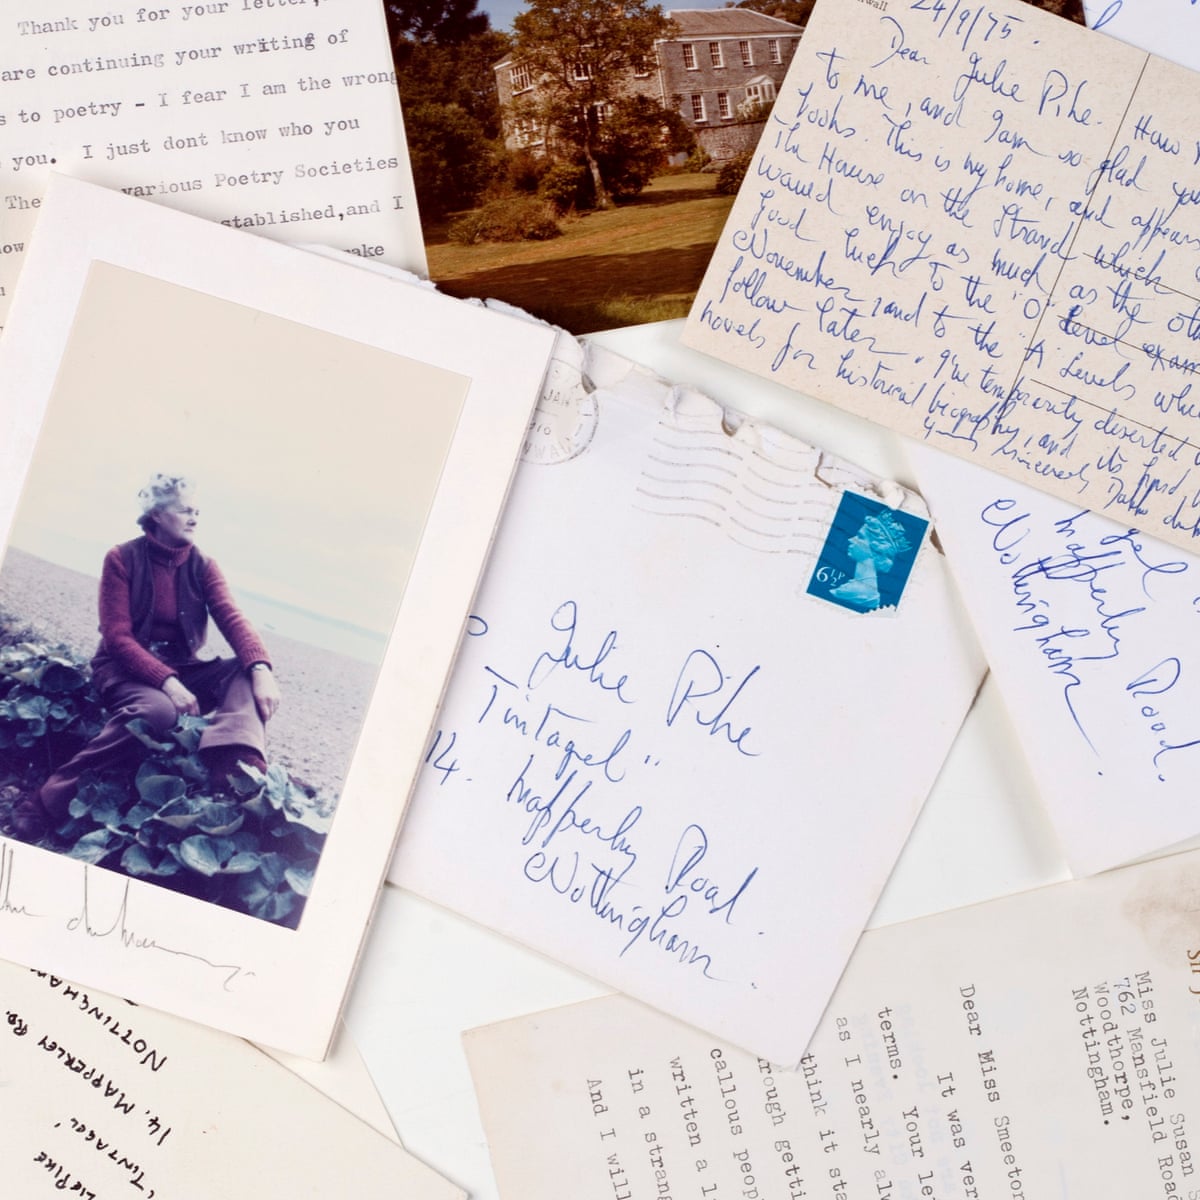 Thank you for your letter,
are continuing your writing of
s to poetry - I fear I am the wrong
you. I just dont know who you
The various Poetry Societies
stablished,and I
ow
ake
rwall
24/9/75.
Dear Julie Pike. How
to me, and I am so glad you
books. This is my home, and appears
The House on the Strand which
would enjoy as much as the oth
Good luck to the "O" level exam
November, and to the "A" Levels whic
follow later. I've temporarily deserted
novels for historical biography, and its hard
Yours sincerely
JAN
NWALL
6½P
Julie Pike
"Tintagel"
14. Mapperley Road.
Nottingham.
gel
Mapperley Road.
Nottingham.
LIE PIKE
'TINTAGEL'
14, MAPPERLEY RD.
NOTTINGHAM
Miss Julie Susan
762 Mansfield Road
Woodthorpe,
Nottingham.
Dear Miss Smeeton
It was ver
terms. Your le
as I nearly al
think it sta
rough getti
callous peop
written a l
in a strang
And I will